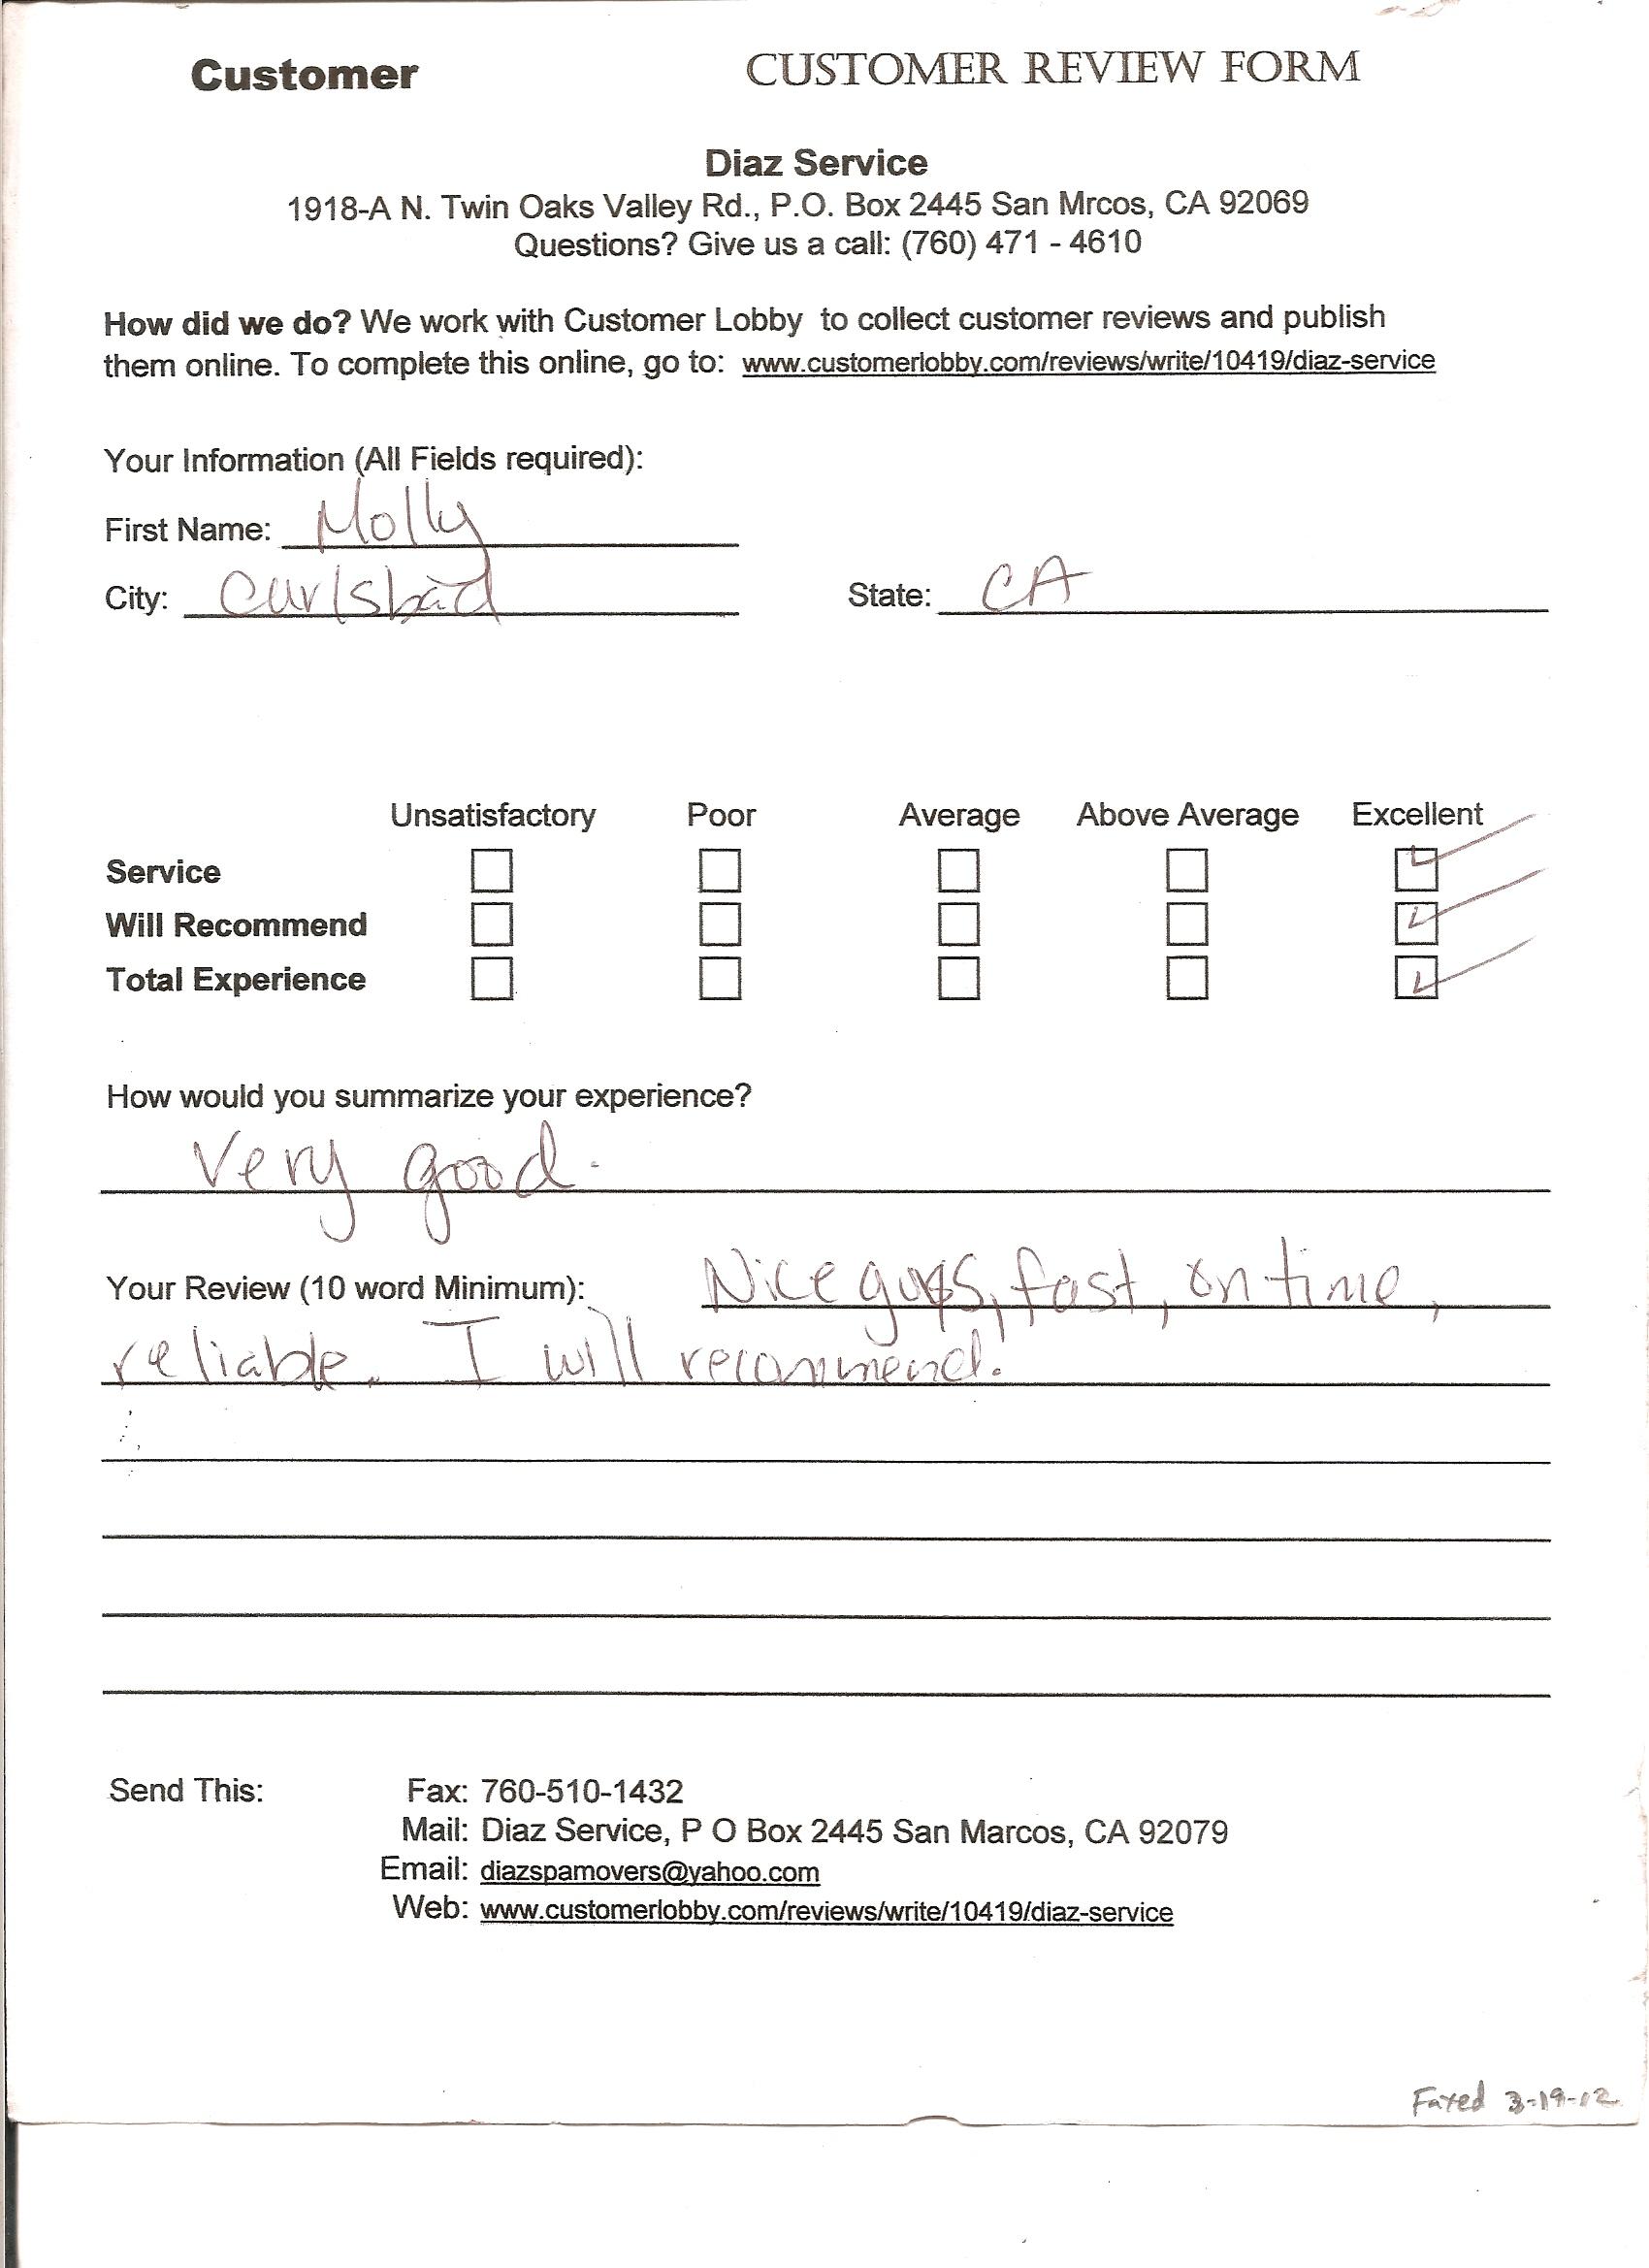 Customer CUSTOMER REVIEW FORM
Diaz Service
1918-A N. Twin Oaks Valley Rd., P.O. Box 2445 San Mrcos, CA 92069
Questions? Give us a call: (760) 471 - 4610
How did we do? We work with Customer Lobby to collect customer reviews and publish
them online. To complete this online, go to: www.customerlobby.com/reviews/write/10419/diaz-service
Your Information (All Fields required):
First Name: Molly
City: Carlsbad State: CA
Unsatisfactory Poor Average Above Average Excellent
Service
Will Recommend
Total Experience
How would you summarize your experience?
Very good.
Your Review (10 word Minimum): Nice guys, fast, on time,
reliable. I will recommend.
Send This: Fax: 760-510-1432
Mail: Diaz Service, P O Box 2445 San Marcos, CA 92079
Email: diazspamovers@yahoo.com
Web: www.customerlobby.com/reviews/write/10419/diaz-service
Faxed 3-19-12